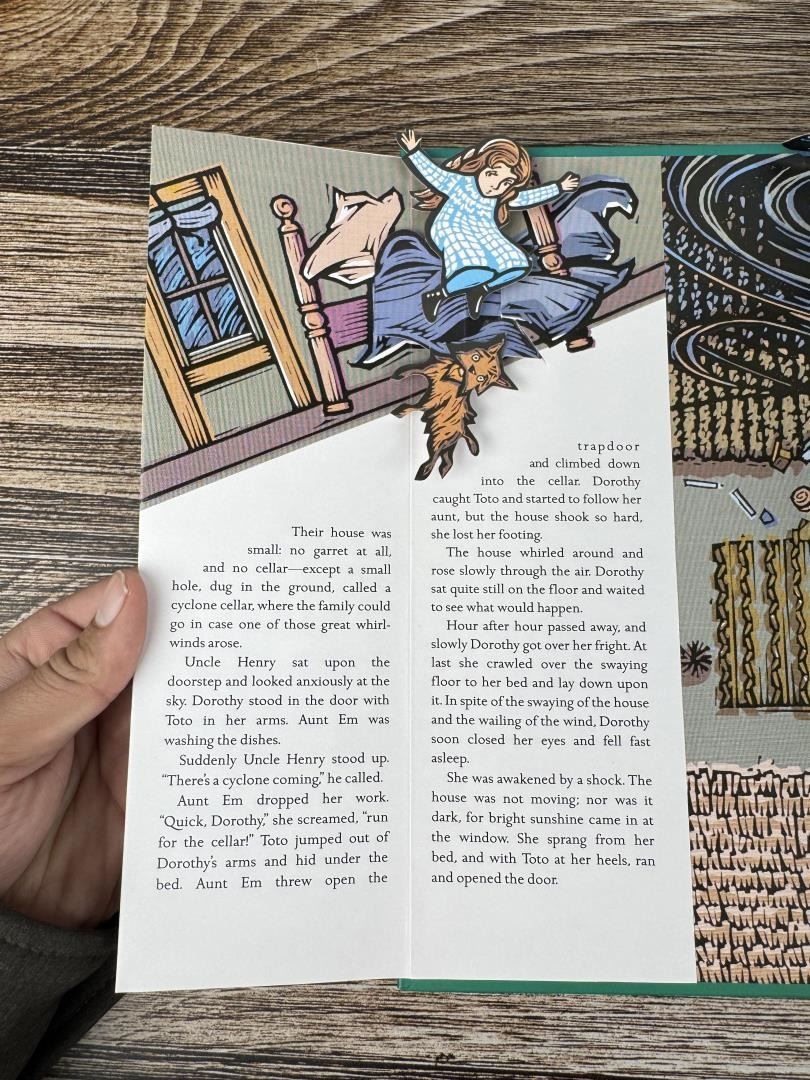 Their house was
small: no garret at all,
and no cellar—except a small
hole, dug in the ground, called a
cyclone cellar, where the family could
go in case one of those great whirl-
winds arose.
Uncle Henry sat upon the
doorstep and looked anxiously at the
sky. Dorothy stood in the door with
Toto in her arms. Aunt Em was
washing the dishes.
Suddenly Uncle Henry stood up.
“There’s a cyclone coming,” he called.
Aunt Em dropped her work.
“Quick, Dorothy,” she screamed, “run
for the cellar!” Toto jumped out of
Dorothy’s arms and hid under the
bed. Aunt Em threw open the
trapdoor
and climbed down
into the cellar. Dorothy
caught Toto and started to follow her
aunt, but the house shook so hard,
she lost her footing.
The house whirled around and
rose slowly through the air. Dorothy
sat quite still on the floor and waited
to see what would happen.
Hour after hour passed away, and
slowly Dorothy got over her fright. At
last she crawled over the swaying
floor to her bed and lay down upon
it. In spite of the swaying of the house
and the wailing of the wind, Dorothy
soon closed her eyes and fell fast
asleep.
She was awakened by a shock. The
house was not moving; nor was it
dark, for bright sunshine came in at
the window. She sprang from her
bed, and with Toto at her heels, ran
and opened the door.